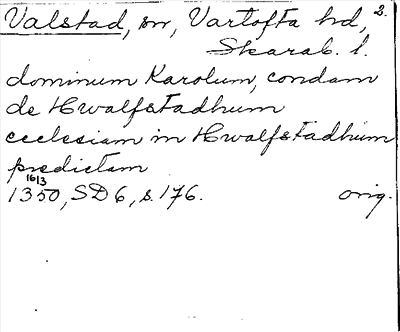 Valstad, sn, Vartofta hd, 2.
Skarab. l.
dominum Karolum, condam
de Hwalfstadhum
ecclesiam in Hwalfstadhum
predictam
16/3
1350, SD 6, s. 176. orig.